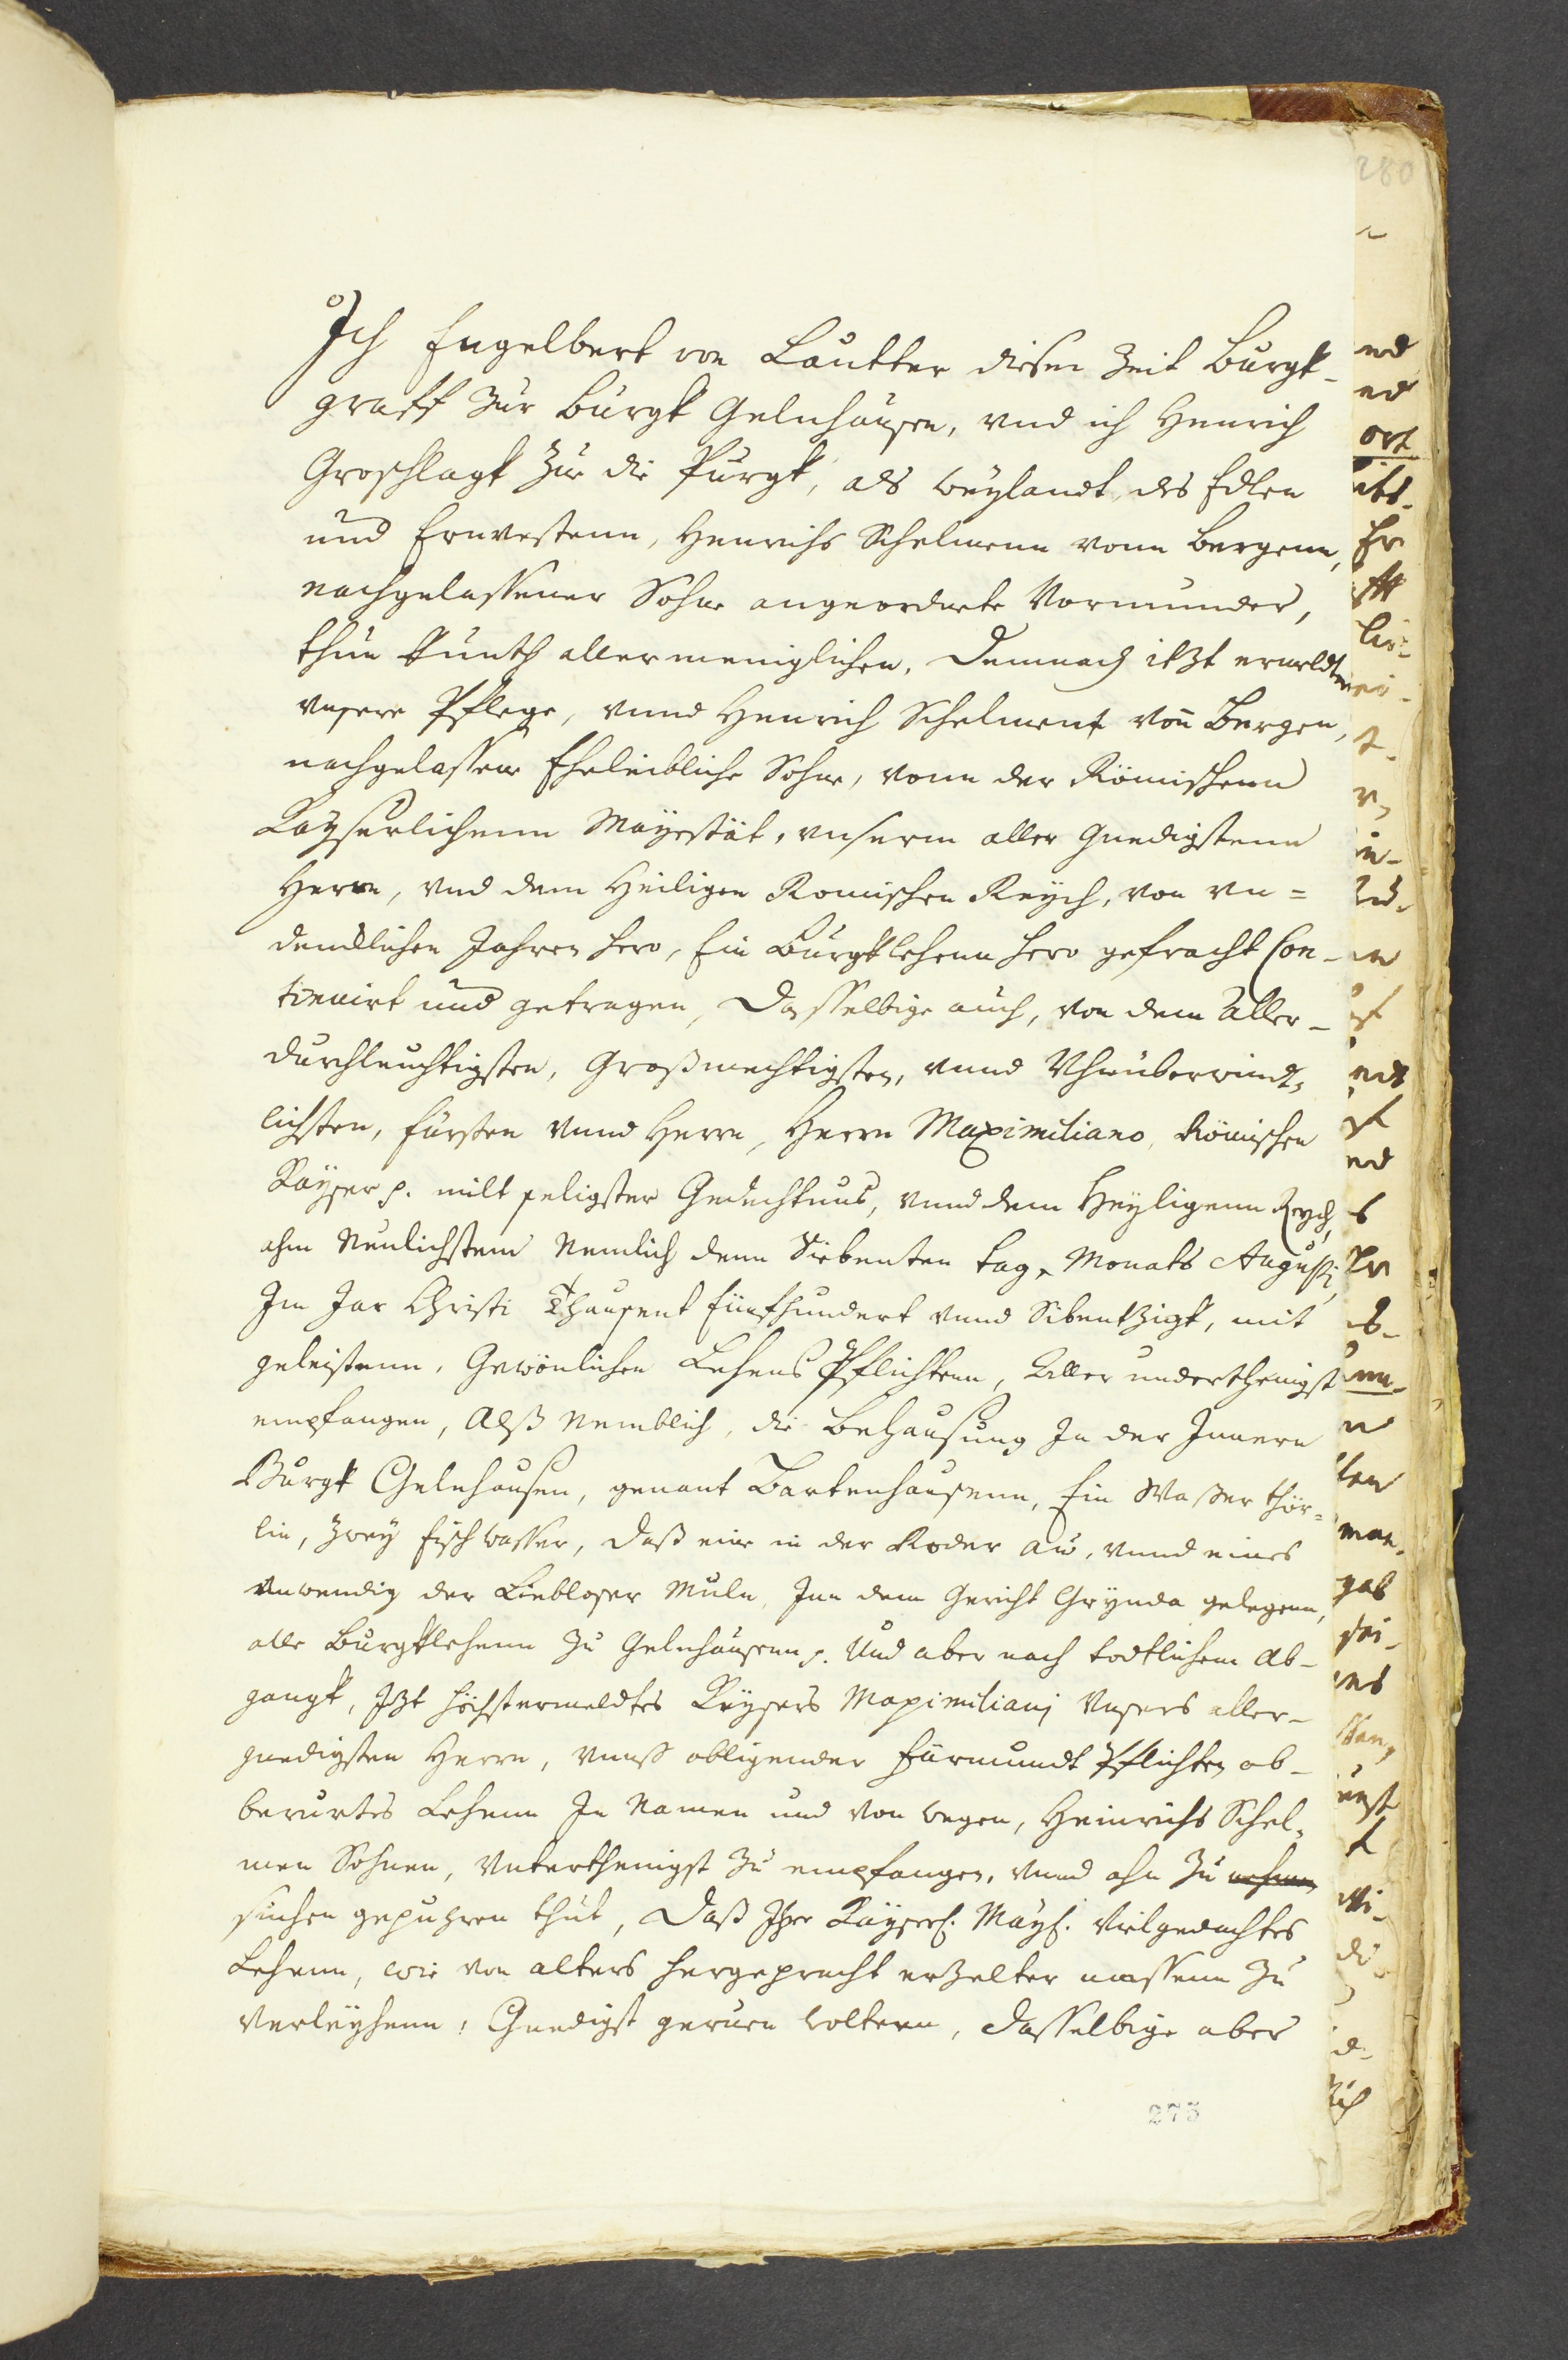 Ich Engelbert von Lautter dieser Zeit Burgk-
graff zur Burgk Gelnhausen, vnd ich Henrich
Groschlagk Zue die Purgk, als weylandt, des Edlen
und Ernvestenn, Henrichs Schelmenn vonn Bergenn,
nachgelassener Sohne angeordnete Vormunder,
thun kunth allermeniglichen, Demnach itzt ermeldten
vnsere Pflege, vnnd Henrich Schelment von Bergen,
nachgelassene Eheleibliche Sohne, vonn der Römischenn
Kayserlichenn Mayestät, vnserm aller Gnedigstenn
Herrn, vnd dem Heiligen Romischen Reych, von vn=
dencklichen Jahren hero, Ein Burgklehenn hero gebracht Con-
tinuirt und getragen, Dasselbige auch, von dem Aller-
durchleuchtigsten, Großmechtigsten, vnnd Vhnüberwindt-
lichsten, fürsten vnnd Herrn, Herrn Maximiliano, Römischen
Kayser p. milt seligster Gedechtnus, vnnd dem Heyligenn Reych,
ahm Neulichstenn Nemlich denn Siebenten tag, Monats Augusti,
Im Jar Christi Thausent fünfhundert vnnd Sibentzigk, mit
geleistenn, Gewönlichen Lehens Pflichtenn, Aller underthenigst
empfangen, Alß Nemblich, die Behausung In der Innern
Burgk Gelnhausen, genant Bartenhausenn, Ein Wasser thör-
lin, zwey fischwasser, daß eine in der Roder au, vnnd eines
vnwendig der Liebloser Muln, Inn dem Gericht Grynda gelegenn,
alle Burgklehenn zu Gelnhausenn p. Und aber nach todtlichem Ab-
gangk, Itzt höchstermeldtes Keysers Maximiliani Vnsers aller-
gnedigsten Herrn, vnnß obligender fürmundt Pflichten ob-
berurtes Lehenn In Namen und von wegen, Heinrichs Schel-
men Sohnen, Vnterthenigst zu empfangen, vnnd ahn zu nehmen
suchen gepuhren thut, Daß Ihre Kayserl. Mayt. Vielgedachtes
Lehenn, wie von alters hergepracht erzelter massenn zu
Verleyhenn, Gnedigst geruen woltenn, dasselbige aber
273
280